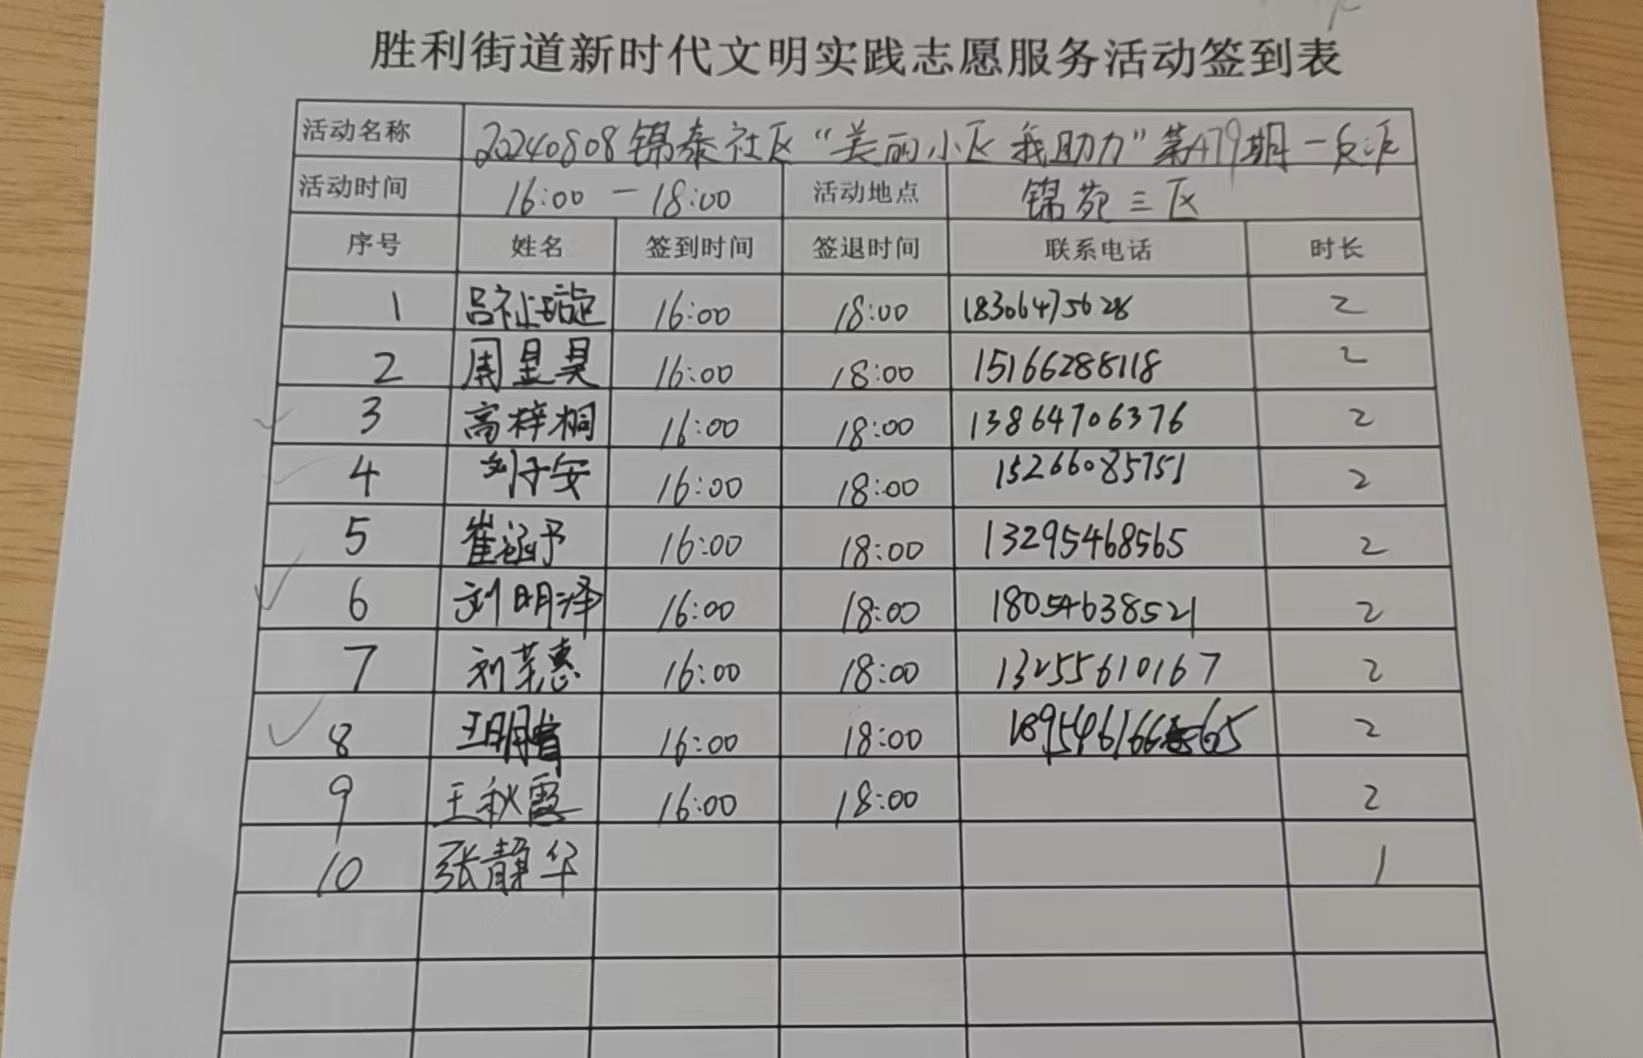 胜利街道新时代文明实践志愿服务活动签到表
活动名称 20240808锦泰社区“美丽小区 我助力”第479期一反诈
活动时间 16:00 — 18:00 活动地点 锦苑三区
序号 姓名 签到时间 签退时间 联系电话 时长
1 吕祉璇 16:00 18:00 18306475628 2
2 周昱昊 16:00 18:00 15166288118 2
3 高梓桐 16:00 18:00 13864706376 2
4 刘子安 16:00 18:00 15266085751 2
5 崔涵予 16:00 18:00 13295468565 2
6 刘明泽 16:00 18:00 18054638521 2
7 刘芊惠 16:00 18:00 13255610167 2
8 王明睿 16:00 18:00 2
9 王秋霞 16:00 18:00 2
10 张静华 1